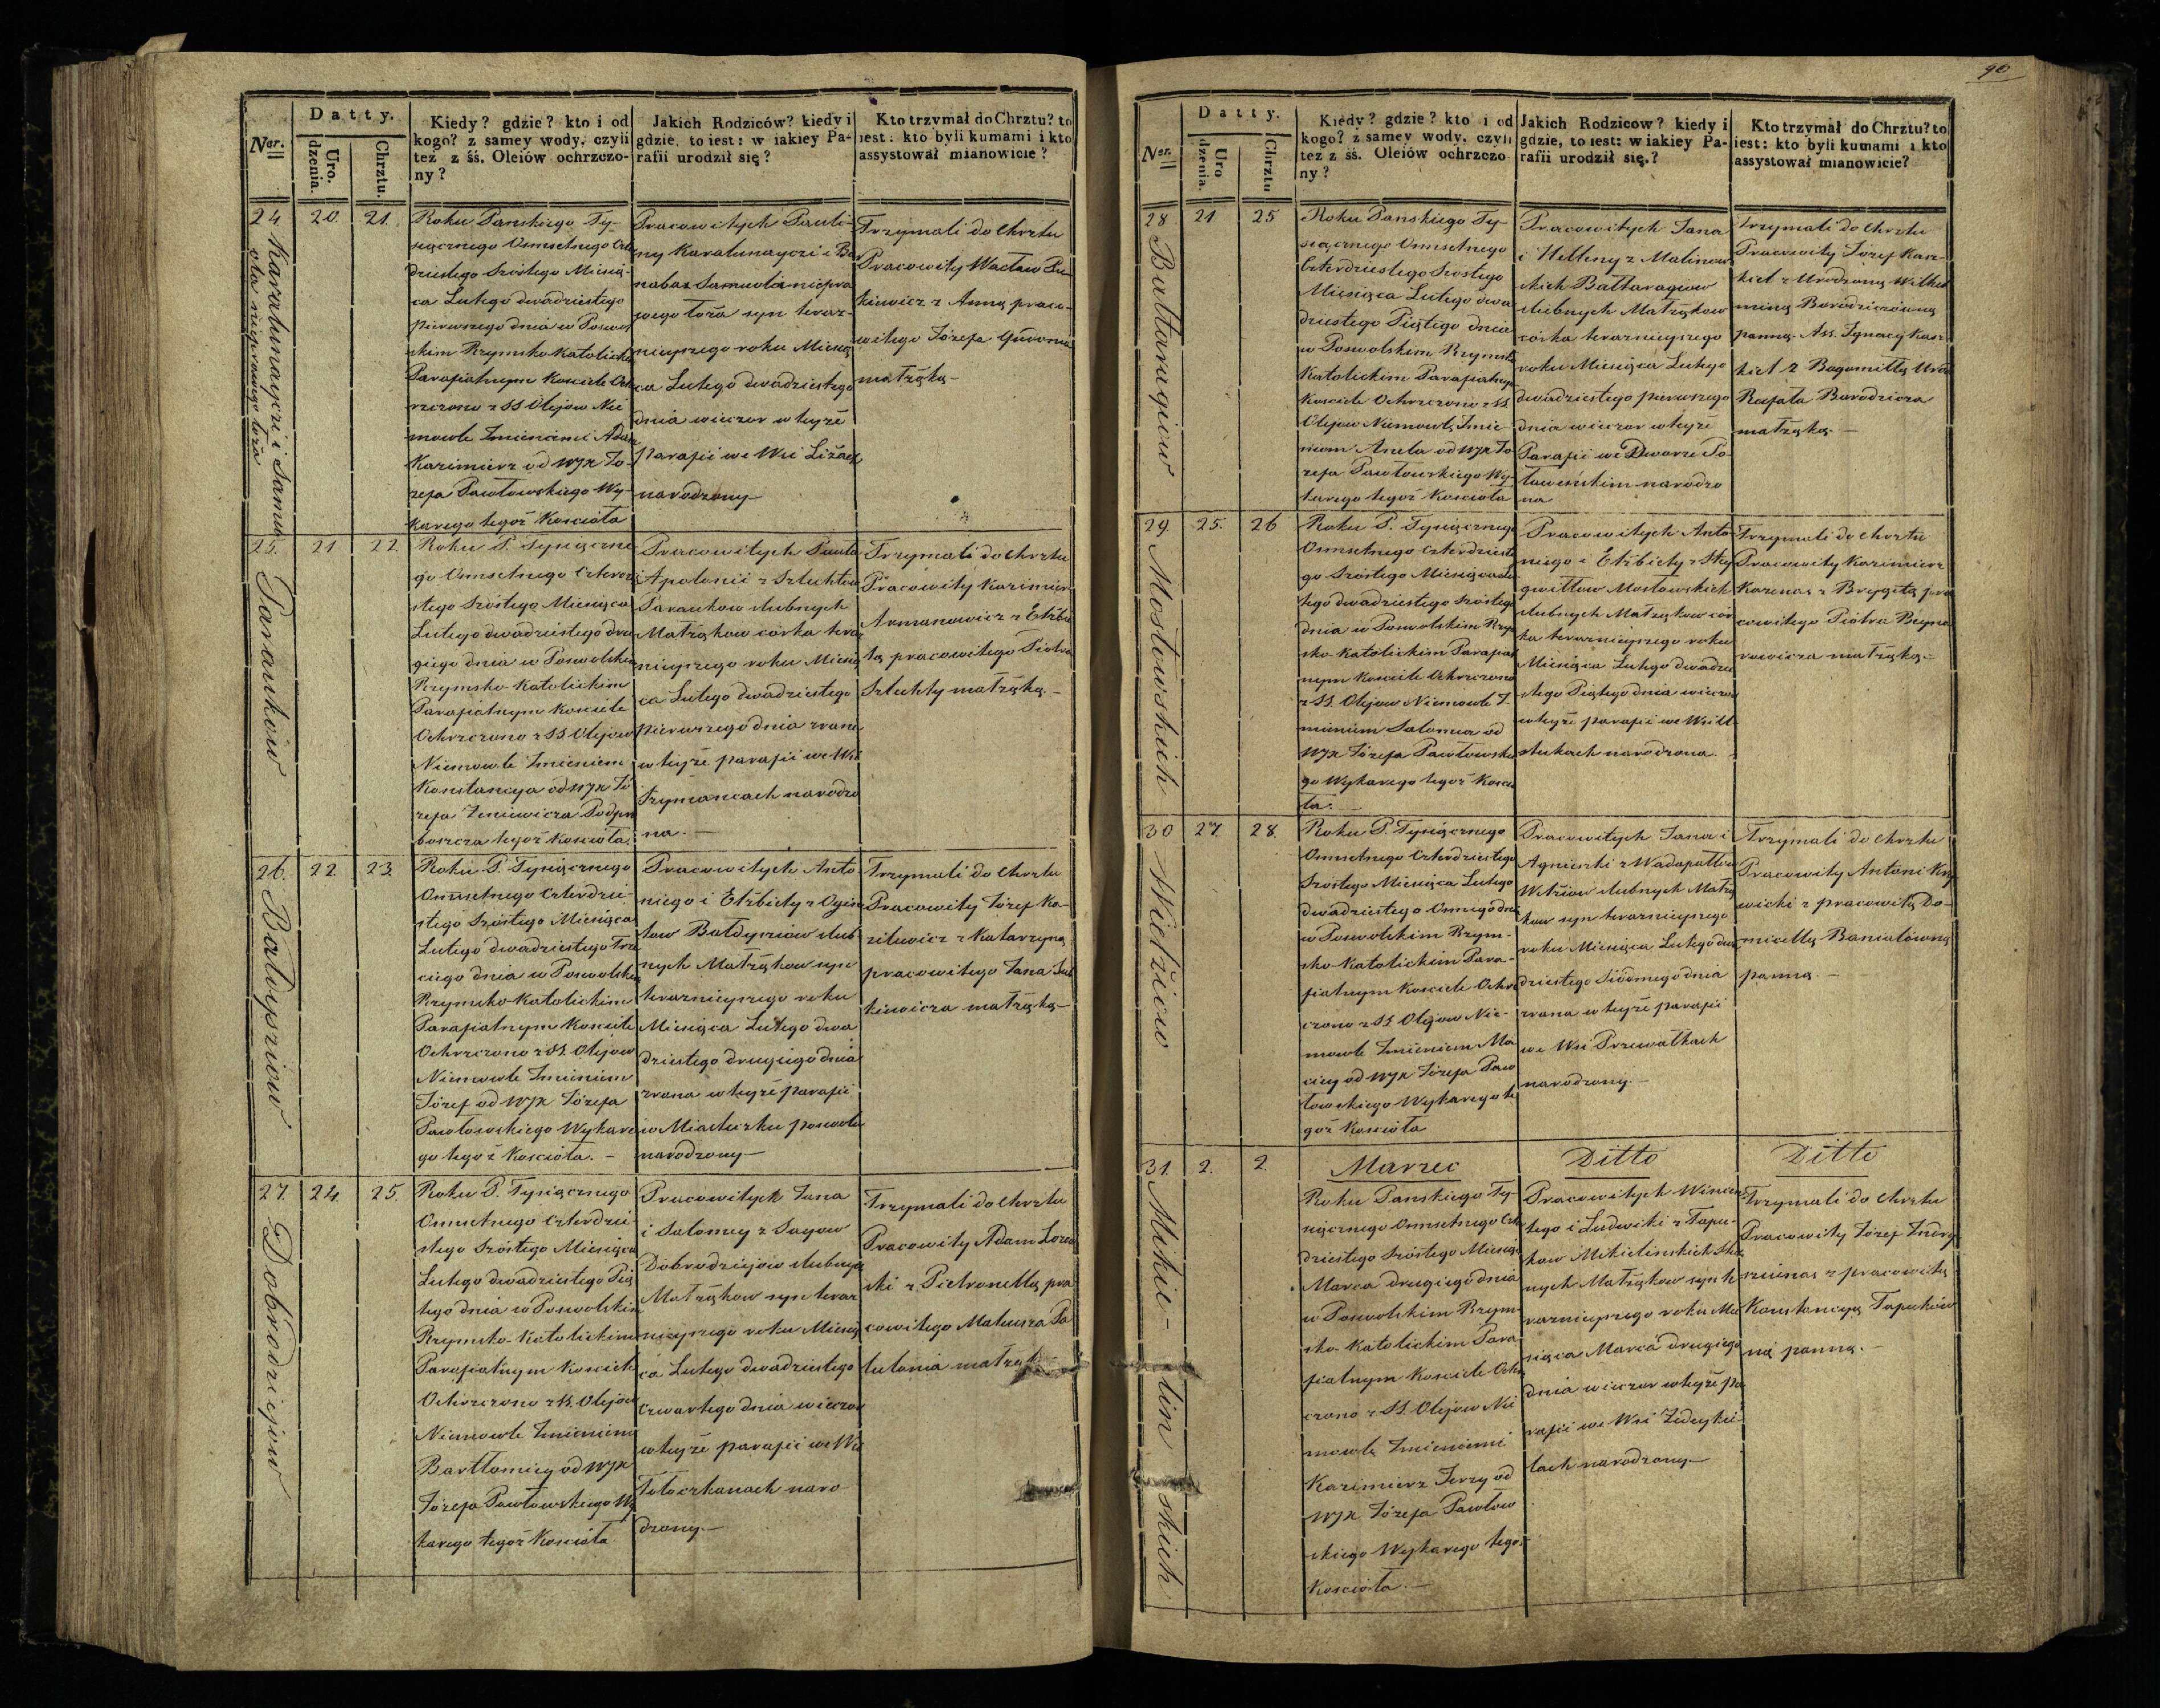 Datty.
Ner.
Uro. dzenia.
Chrztu.
Kiedy? gdzie? kto i od
kogo? z samey wody, czyli
też z śś. Oleiów ochrzczo-
ny?
Jakich Rodziców? kiedy i
gdzie, to iest: w iakiey Pa-
rafii urodził się?
Kto trzymał do Chrztu? to
iest: kto byli kumami i kto
assystował mianowicie?
24
20
21
Karalunayczi i Samu
oła nieprawego łoża
Roku Panskiego Ty-
siącznego Osmsetnego Czter
dziestego Szóstego Miesią-
ca Lutego dwadziestego
pierwszego dnia w Poswol
skim Rzymsko-Katolickim
Parafialnym Kosciele Och
rzczono z SS Olejow Nie
mowle Imieniemi Adam
Kazimierz od WJX Jó-
zefa Pawłowskiego Wy-
karego tegoż Kościoła
Pracowitych Pauli-
ny Karalunayczi i Bar
nabas Samuola niepra
wego łoża syn teraz-
nieyszego roku Miesią
ca Lutego dwadziestego
dnia wieczor w teyże
Parafii we Wsi Liżach
narodzony
Trzymali do Chrztu
Pracowity Wacław
kiewicz z Anną praco-
witego Józefa
małżąką
25.
21
22
Paraukow
Roku P. Tysiączne
go Osmsetnego Czterdzie
stego Szóstego Miesiąca
Lutego dwadziestego dru
giego dnia w Poswolskim
Rzymsko-Katolickim
Parafialnym Kosciele
Ochrzczono z SS Olejow
Niemowle Imieniem
Konstancya od WJX Jó
zefa Zeniewicza Podpro
boszcza tegoż Kościoła.
Pracowitych Pawła
i Apolonii z Szlachtow
Paraukow slubnych
Małżąkow córka teraz
nieyszego roku Miesią
ca Lutego dwadziestego
pierwszego dnia zrana
w teyże parafii we Wsi
narodzo
na.
Trzymali do Chrztu
Pracowity Kazimierz
Armanowicz z Elżbie
tą pracowitego Piotra
Szluchty małżąką
26.
22
23
Bałdysziow
Roku P. Tysiącznego
Osmsetnego Czterdzie-
stego Szóstego Miesiąca
Lutego dwadziestego Trze
ciego dnia w Poswolskim
Rzymsko-Katolickim
Parafialnym Kosciele
Ochrzczono z SS. Olejow
Niemowle Imieniem
Józef od WJX Józefa
Pawłowskiego Wykare
go tegoż Kościoła.
Pracowitych Anto
niego i Elżbiety z
Bałdysziow slub
nych Małżąkow syn
teraznieyszego roku
Miesiąca Lutego dwa
dziestego drugiego dnia
zrana w teyże parafii
w Miasteczku poswolu
narodzony
Trzymali do Chrztu
Pracowity Józef Ka-
zilewicz z Katarzyną
pracowitego Jana
kiewicza małżąką
27.
24
25
Dobrodziejow
Roku P. Tysiącznego
Osmsetnego Czterdzie
stego Szóstego Miesiąca
Lutego dwadziestego Pią
tego dnia w Poswolskim
Rzymsko-Katolickim
Parafialnym Kosciele
Ochrzczono z SS. Olejow
Niemowle Imieniem
Bartłomiey od WJX
Józefa Pawłowskiego Wy
karego tegoż Kościoła
Pracowitych Jana
i Salomey z Sayow
Dobrodziejow slubnych
Małżąkow syn teraz
nieyszego roku Miesią
ca Lutego dwadziestego
czwartego dnia wieczor
w teyże parafii we Wsi
Tołoczkanach naro
dzony
Trzymali do Chrztu
Pracowity Adam
ski z Pietronellą pra
cowitego Mateusza Pa
lulonia małżąką
90
Datty.
Ner.
Uro dzenia.
Chrztu
Kiedy? gdzie? kto i od
kogo? z samey wody, czyli
też z śś. Oleiów ochrzczo
ny?
Jakich Rodzicow? kiedy i
gdzie, to iest: w iakiey Pa-
rafii urodził się.?
Kto trzymał do Chrztu? to
iest: kto byli kumami i kto
assystował mianowicie?
28
21
25
Bałtaragiow
Roku Panskiego Ty-
siącznego Osmsetnego
Czterdziestego Szóstego
Miesiąca Lutego dwa
dziestego Piątego dnia
w Poswolskim Rzymsko
Katolickim Parafialnym
Kosciele Ochrzczono z SS.
Olejow Niemowlę Imie-
niem Aniela od WJX Jó
zefa Pawłowskiego Wy-
karego tegoż Kościoła
Pracowitych Jana
i Helleny z Malinow
skich Bałtaragiow
slubnych Małżąkow
córka teraznieyszego
roku Miesiąca Lutego
dwadziestego pierwszego
dnia wieczor w teyże
Parafii we Dworze Po
ławeńskim narodzo
na
Trzymali do Chrztu
Pracowity Józef Kasz-
kiel z Urodzoną Wilhel
miną Borodziczowną
panną. Ass. Ignacy Kasz
kiel z Bogomillą Uro
Rafała Borodzicza
małżąką.
29
25.
26
Mosłowskich
Roku P. Tysiącznego
Osmsetnego Czterdzieste
go Szóstego Miesiąca Lu
tego dwadziestego szóstego
dnia w Poswolskim Rzym
sko-Katolickim Parafial
nym Kosciele Ochrzczono
z SS. Olejow Niemowle I-
mieniem Salomea od
WJX Józefa Pawłowskie
go Wykarego tegoż Kościo
ła.
Pracowitych Anto
niego i Elżbiety z Sty
gwiłłow Mosłowskich
slubnych Małżąkow cór
ka teraznieyszego roku
Miesiąca Lutego dwadzie
stego Piątego dnia wieczor
w teyże parafii we Wsi U
stukach narodzona.
Trzymali do Chrztu
Pracowity Kazimierz
Karenas z Brygittą pra
cowitego Piotra Beyna
rowicza małżąką
30
27
28
Wełziow
Roku P. Tysiącznego
Osmsetnego Czterdziestego
Szóstego Miesiąca Lutego
dwadziestego Osmego dnia
w Poswolskim Rzym-
sko-Katolickim Para-
fialnym Kosciele Ochrz
czono z SS Olejow Nie-
mowle Imieniem Ma
ciey od WJX Józefa Paw
łowskiego Wykarego te
goż Kościoła
Pracowitych Jana i
Agnieszki z Wadapallow
Wełziow slubnych Małżą
kow syn teraznieyszego
roku Miesiąca Lutego dwa
dziestego Siódmego dnia
zrana w teyże parafii
we Wsi Przewałkach
narodzony.
Trzymali do Chrztu
Pracowity Antoni Kry
wicki z pracowitą Do-
micellą Baniulowną
panną.
31.
2.
2.
Mikie-lin skich
Marzec
Ditto
Ditto
Roku Panskiego Ty-
siącznego Osmsetnego Czter
dziestego Szóstego Miesiąca
Marca drugiego dnia
w Poswolskim Rzym-
sko-Katolickim Para
fialnym Kosciele Ochrz
czono z SS. Olejow Nie
mowlę Imieniemi
Kazimierz Jerzy od
WJX Józefa Pawłow
skiego Wykarego tegoż
Kościoła.
Pracowitych Wincen-
tego i Ludwiki z Tapu-
kow Mikielinskich slub
nych Małżąkow syn te
raznieyszego roku Mie
siąca Marca drugiego
dnia wieczor w teyże pa
rafii we Wsi Zideykie-
lach narodzony.
Trzymali do Chrztu
Pracowity Józef
z pracowitą
Konstancyą Tapukow
ną panną.